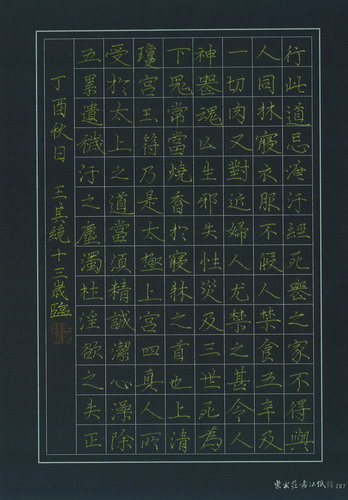 行此道忌淹汙經死喪之家不得與
人同牀寢衣服不假人禁食五辛及
一切肉又對近婦人尤禁之甚令人
神喪魂亡生邪失性災及三世死為
下鬼常當燒香於寢牀之首也上清
瓊宮玉符乃是太極上宮四真人所
受於太上之道當須精誠潔心澡除
五累遺穢汙之塵濁杜淫欲之失正
丁酉秋日 王其統十三歲臨